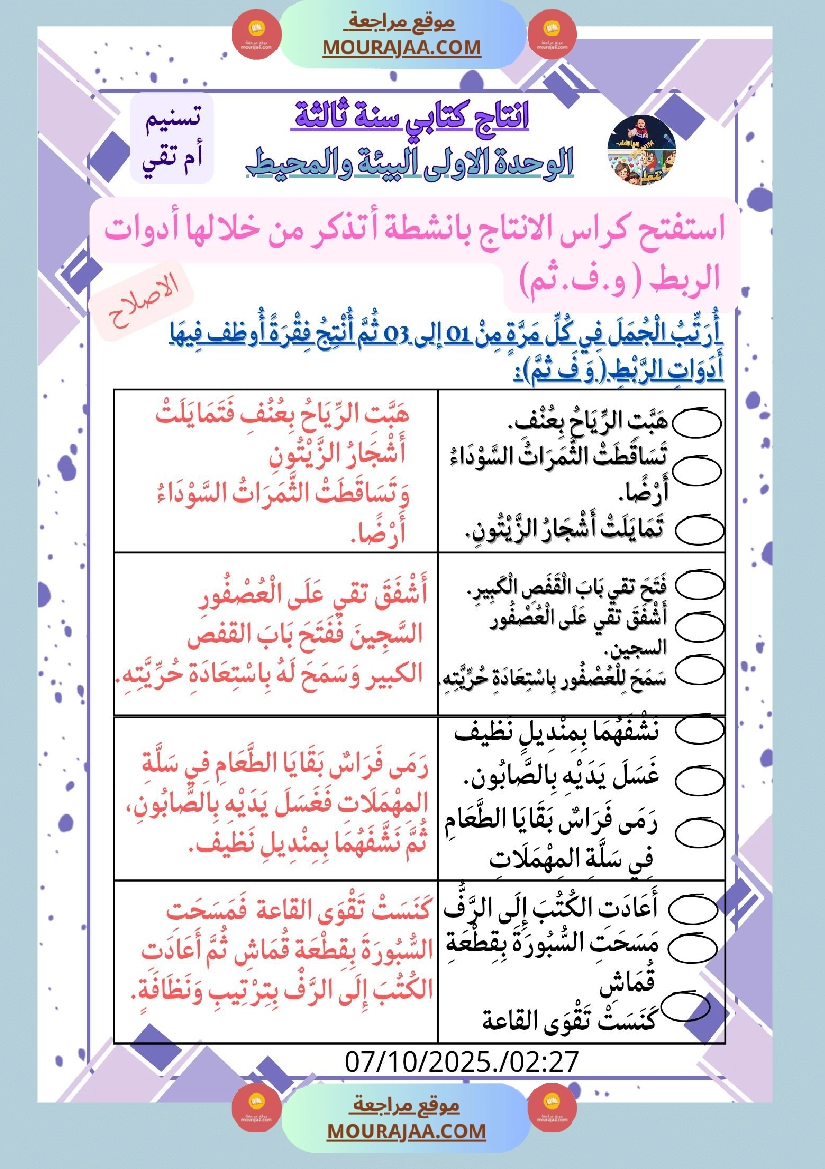 موقع مراجعة
MOURAJAA.COM
انتاج كتابي سنة ثالثة
الوحدة الاولى البيئة والمحيط
تسنيم
أم تقي
استفتح كراس الانتاج بانشطة أتذكر من خلالها أدوات
الربط ( و.ف.ثم)
الاصلاح
أُرَتِّبُ الْجُمَلَ فِي كُلِّ مَرَّةٍ مِنْ 01 إلى 03 ثُمَّ أُنْتِجُ فِقْرَةً أُوظف فِيهَا
أَدَوَاتِ الرَّبْطِ( وَ فَ ثمَّ):
هَبَّتِ الرِّيَاحُ بِعُنْفٍ.
تَسَاقَطَتْ الثَّمَرَاتُ السَّوْدَاءُ
أَرْضًا.
تَمَايَلَتْ أَشْجَارُ الزَّيْتُونِ.
هَبَّتِ الرِّيَاحُ بِعُنُفِ فَتَمَايَلَتْ
أَشْجَارُ الزَّيْتُونِ
وَتَسَاقَطَتْ الثَّمَرَاتُ السَّوْدَاءُ
أَرْضًا.
فَتَحَ تقي بَابَ الْقَفَصِ الْكَبِيرِ.
أَشْفَقَ تقي عَلَى الْعُصْفُور
السجين.
سَمَحَ لِلْعُصْفُورِ بِاسْتِعَادَةِ حُرِّيَّتِهِ.
أَشْفَقَ تقي عَلَى الْعُصْفُورِ
السَّجِينَ فَفَتَحَ بَابَ القفص
الكبير وَسَمَحَ لَهُ بِاسْتِعَادَةِ حُرِّيَّتِهِ.
نَشَّفَهُمَا بِمِنْدِيلٍ نَظيف
غَسَلَ يَدَيْهِ بِالصَّابُون.
رَمَى فَرَاسٌ بَقَايَا الطَّعَامِ
فِي سَلَّةِ المِهْمَلَاتِ
رَمَى فَرَاسٌ بَقَايَا الطَّعَامِ فِي سَلَّةِ
المِهْمَلَاتِ فَغَسَلَ يَدَيْهِ بِالصَّابُونِ،
ثُمَّ نَشَّفَهُمَا بِمِنْدِيلِ نَظِيف.
أَعَادَتِ الكُتُبَ إِلَى الرَّفِّ
مَسَحَتِ السُّبُورَةَ بِقِطْعَةِ
قُمَاشِ
كَنَسَتْ تَقْوَى القاعة
كَنَسَتْ تَقْوَى القاعة فَمَسَحَتِ
السُّبُورَةَ بِقِطْعَة قُمَاشِ ثُمَّ أَعَادَتِ
الكُتُبَ إِلَى الرَّفِّ بِتَرْتِيبِ وَنَظَافَةٍ.
07/10/2025./02:27
موقع مراجعة
MOURAJAA.COM